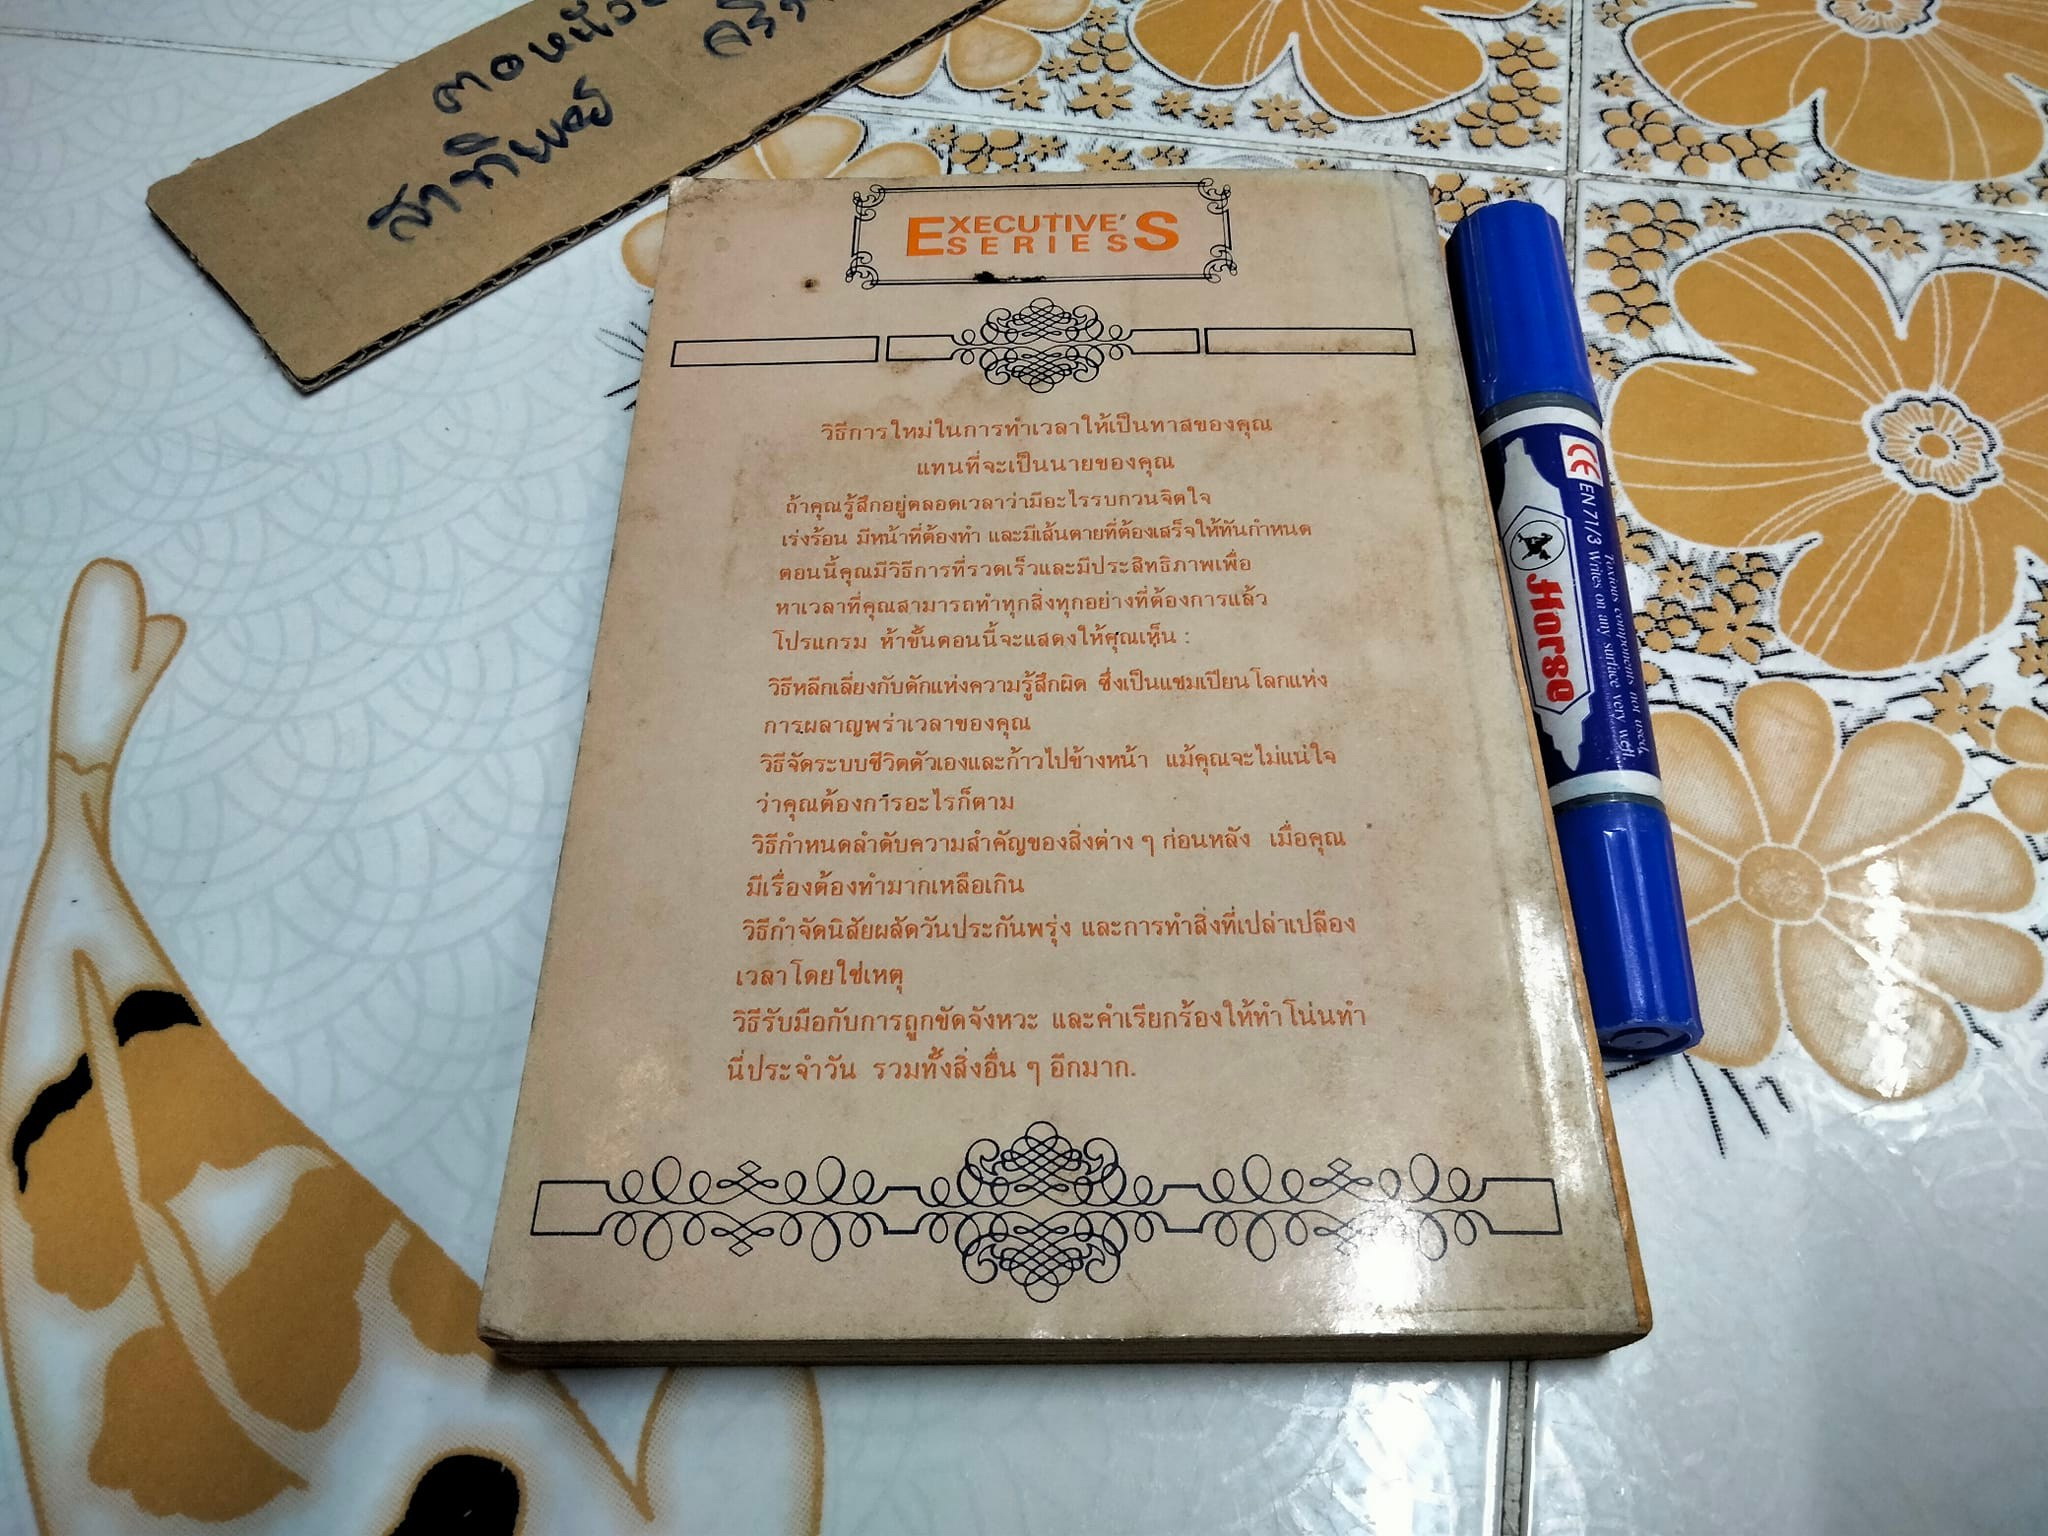 ตอหนัง
สาทิพย์
EXECUTIVE'S
SERIES
วิธีการใหม่ในการทำเวลาให้เป็นทาสของคุณ
แทนที่จะเป็นนายของคุณ
ถ้าคุณรู้สึกอยู่ตลอดเวลาว่ามีอะไรรบกวนจิตใจ
เร่งร้อน มีหน้าที่ต้องทำ และมีเส้นตายที่ต้องเสร็จให้ทันกำหนด
ตอนนี้คุณมีวิธีการที่รวดเร็วและมีประสิทธิภาพเพื่อ
หาเวลาที่คุณสามารถทำทุกสิ่งทุกอย่างที่ต้องการแล้ว
โปรแกรม ห้าขั้นตอนนี้จะแสดงให้คุณเห็น :
วิธีหลีกเลี่ยงกับดักแห่งความรู้สึกผิด ซึ่งเป็นแชมเปียนโลกแห่ง
การผลาญพร่าเวลาของคุณ
วิธีจัดระบบชีวิตตัวเองและก้าวไปข้างหน้า แม้คุณจะไม่แน่ใจ
ว่าคุณต้องการอะไรก็ตาม
วิธีกำหนดลำดับความสำคัญของสิ่งต่าง ๆ ก่อนหลัง เมื่อคุณ
มีเรื่องต้องทำมากเหลือเกิน
วิธีกำจัดนิสัยผลัดวันประกันพรุ่ง และการทำสิ่งที่เปล่าเปลือง
เวลาโดยใช่เหตุ
วิธีรับมือกับการถูกขัดจังหวะ และคำเรียกร้องให้ทำโน่นทำ
นี่ประจำวัน รวมทั้งสิ่งอื่น ๆ อีกมาก.
CE EN 71/3 Writes on any surface very well.
Toxious components not used.
Horse